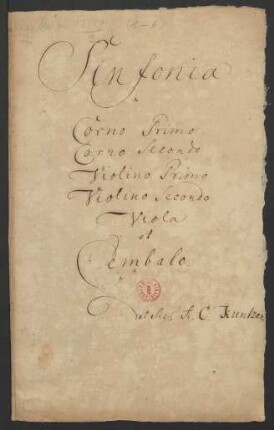 Sinfonia
a
Corno Primo
Corno Secondo
Violino Primo
Violino Secondo
Viola
et
Cembalo
A. C. Kunzen